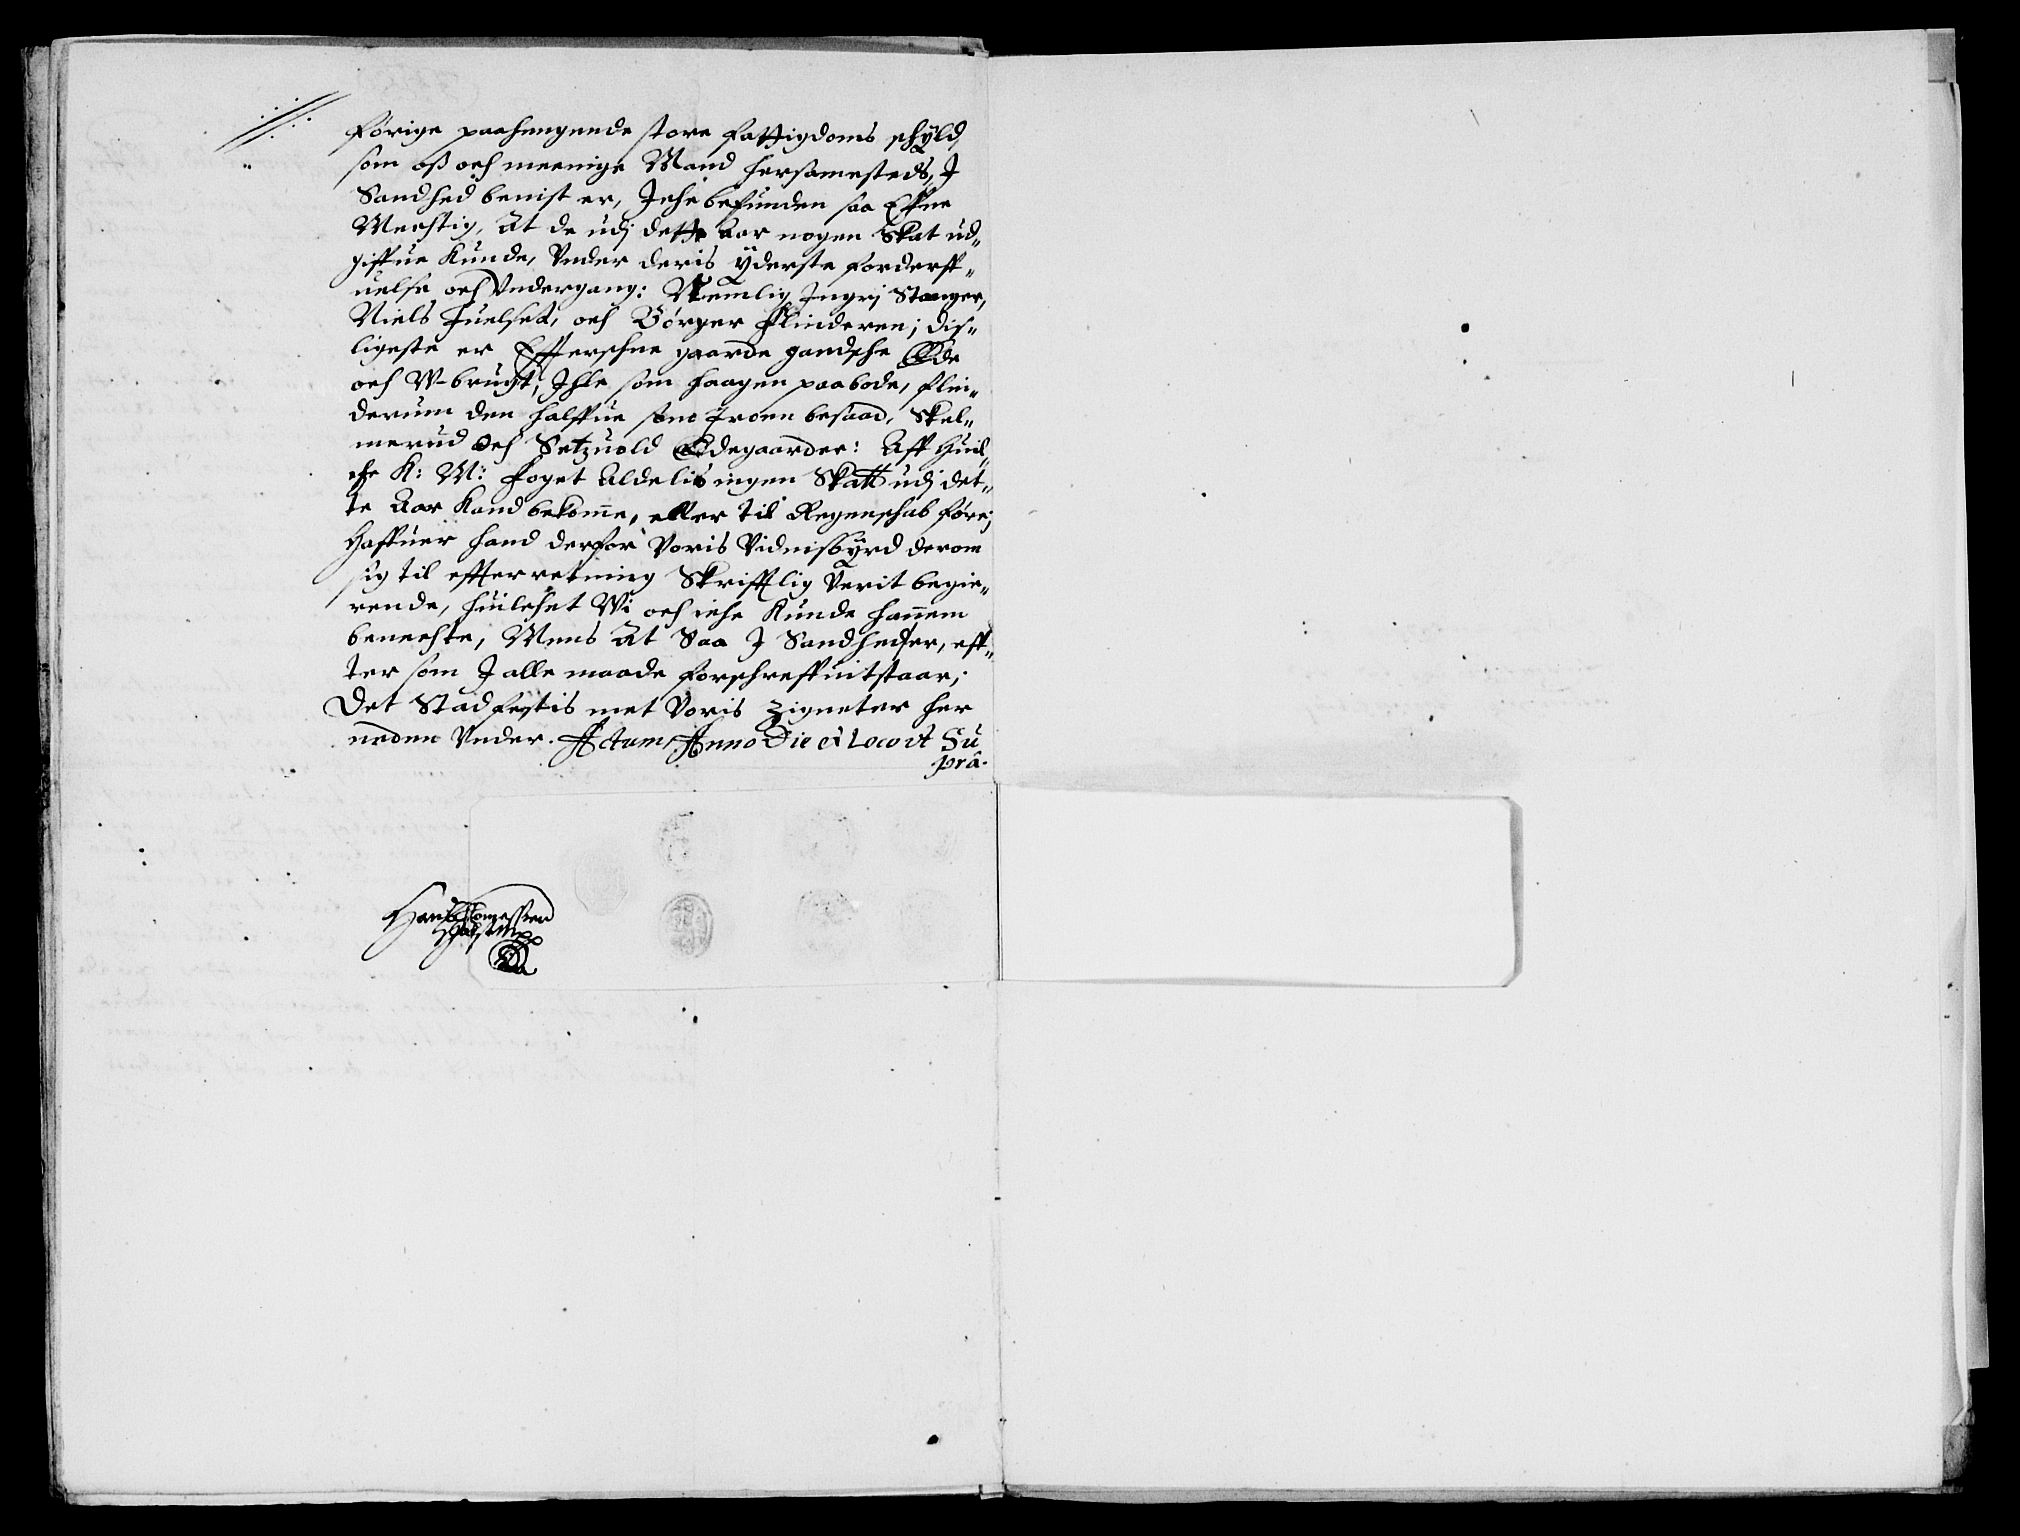 förige paahengende store Fattigdoms schyld
som oß och meenige Mand hersamesteds, J
Sandhed beuist er, Iche befunden saa Effne
Mechtig, At de udj dette Aar nogen Skat ud„
giffue Kunde, Vnder deris yderste Forderff„
uelse och Vndergang: Nemlig Ingrj Stanger,
Niels Fuelset, och Börger Flinderen; dis„
ligeste er Effterschne gaarde gandsche Øde
och W-brugt, Ihle som haagen paabode, Flin„
derum den halffue som Iroen besaad, Skel„
merud Och Setzuold Ødegaarder: Aff Huil„
che K: M: Foget Aldelis ingen Skatt udj det„
te Aar Kand bekome, eller til Regenschab före;
Haffuer hand derfor Voris Vidnisbyrd derom
sig til effterretning Skrifftlig Verit begie„
rende, huilchet Wi och iche Kunde hannem
benechte, Mens At Saa J Sandhed er, eff„
ter som J alle maade forschreffuit staar;
Det Stadfestis met Voris Zigneter her
neden Vnder. Actum Anno Die et Loco ut Su
pra.